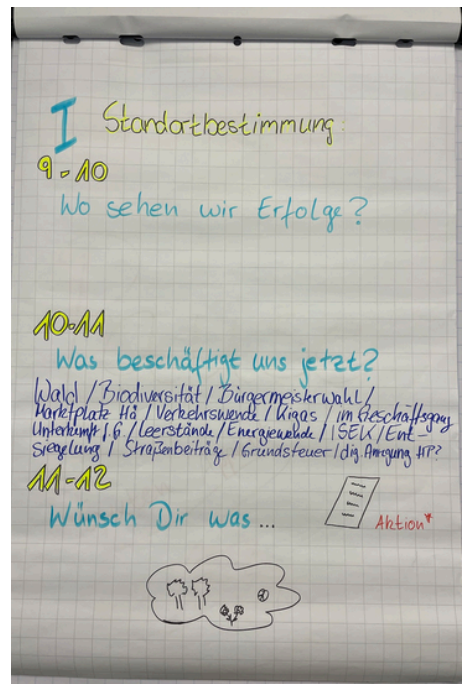 I Standortbestimmung:
9-10
Wo sehen wir Erfolge?
10-11
Was beschäftigt uns jetzt?
Wald / Biodiversität / Bürgermeisterwahl /
Marktplatz Hö / Verkehrswende / Kigas / im Geschäftsgang
Unterkunft / Leerstände / Energiewende / ISEK / Ent-
Siegelung / Straßenbeiträge / Grundsteuer / dig. HP?
11-12
Wünsch Dir was ...
Aktion*